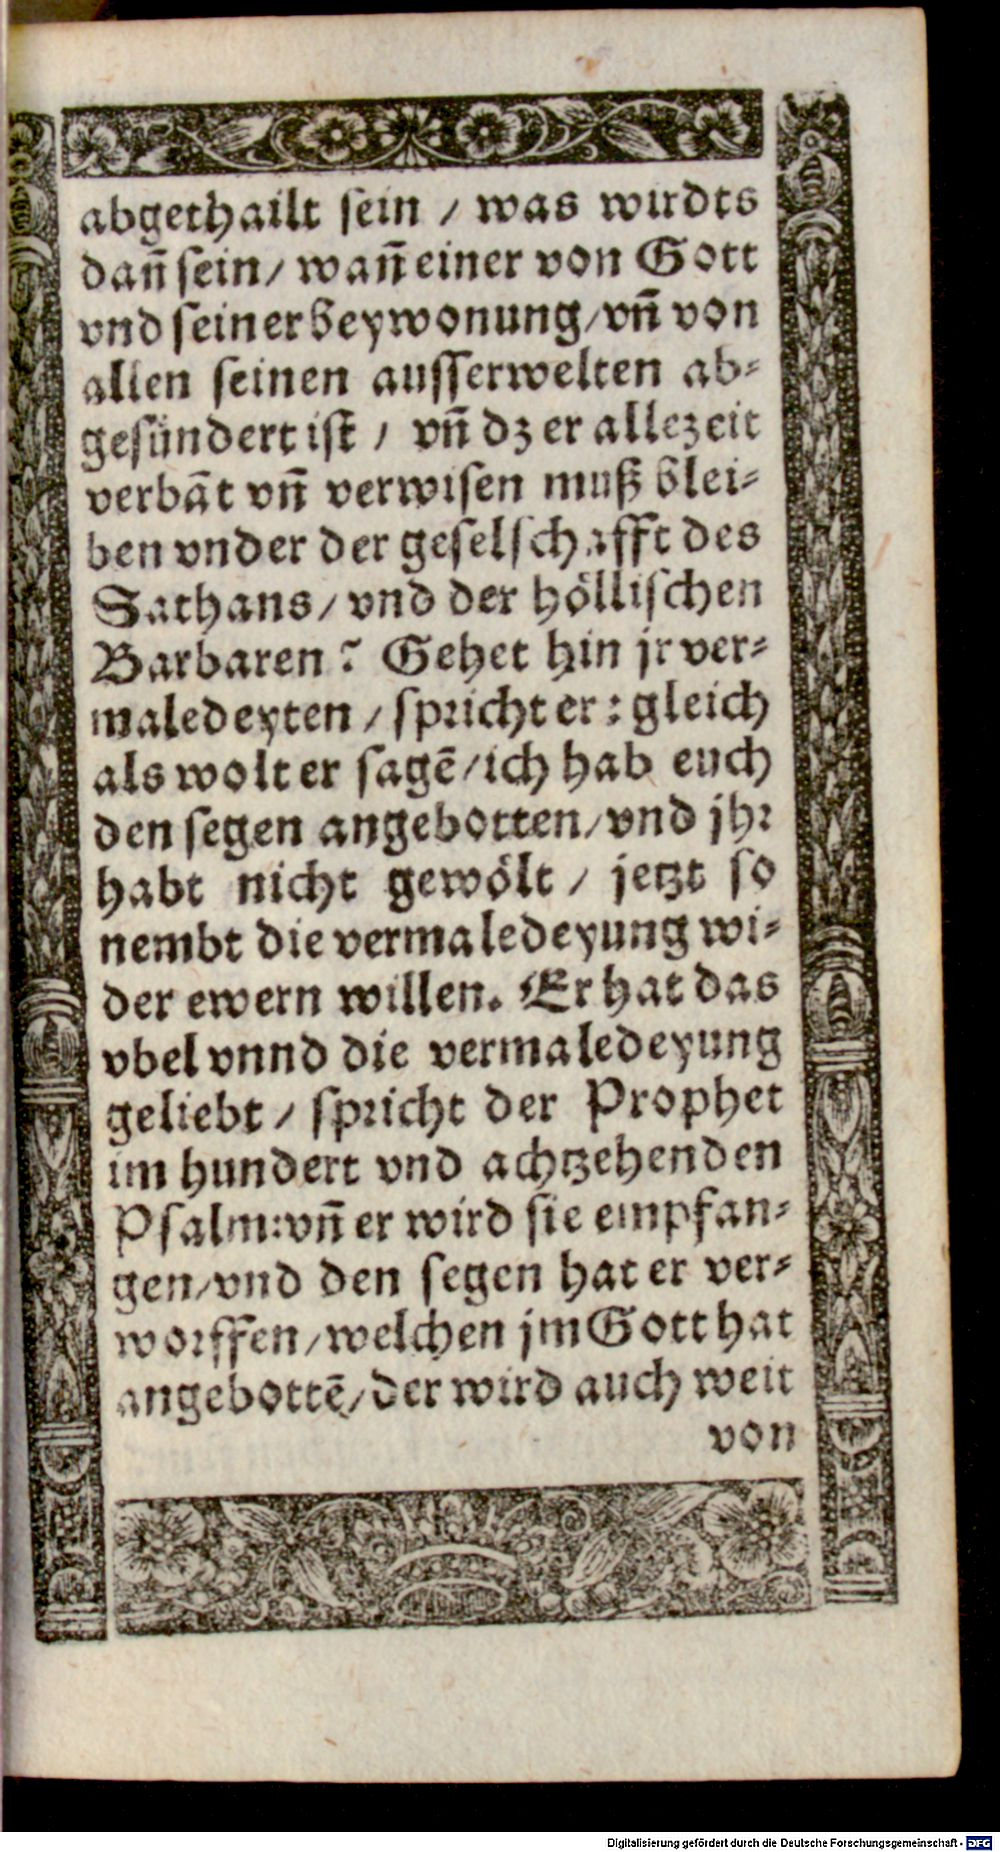 abgethailt sein / was wirdts
dañ sein / wañ einer von Gott
vnd seiner beywonung / vñ von
allen seinen ausserwelten ab-
gesündert ist / vñ dz er allezeit
verbãt vñ verwisen muß blei-
ben vnder der geselschafft des
Sathans / vnd der höllischen
Barbaren? Gehet hin jr ver-
maledeyten / spricht er: gleich
als wolt er sagẽ / ich hab euch
den segen angebotten / vnd jhr
habt nicht gewölt / jetzt so
nembt die vermaledeyung wi-
der ewern willen. Er hat das
vbel vnnd die vermaledeyung
geliebt / spricht der Prophet
im hundert vnd achtzehenden
Psalm: vñ er wird sie empfan-
gen / vnd den segen hat er ver-
worffen / welchen jm Gott hat
angebottẽ / der wird auch weit
von
Digitalisierung gefördert durch die Deutsche Forschungsgemeinschaft - DFG